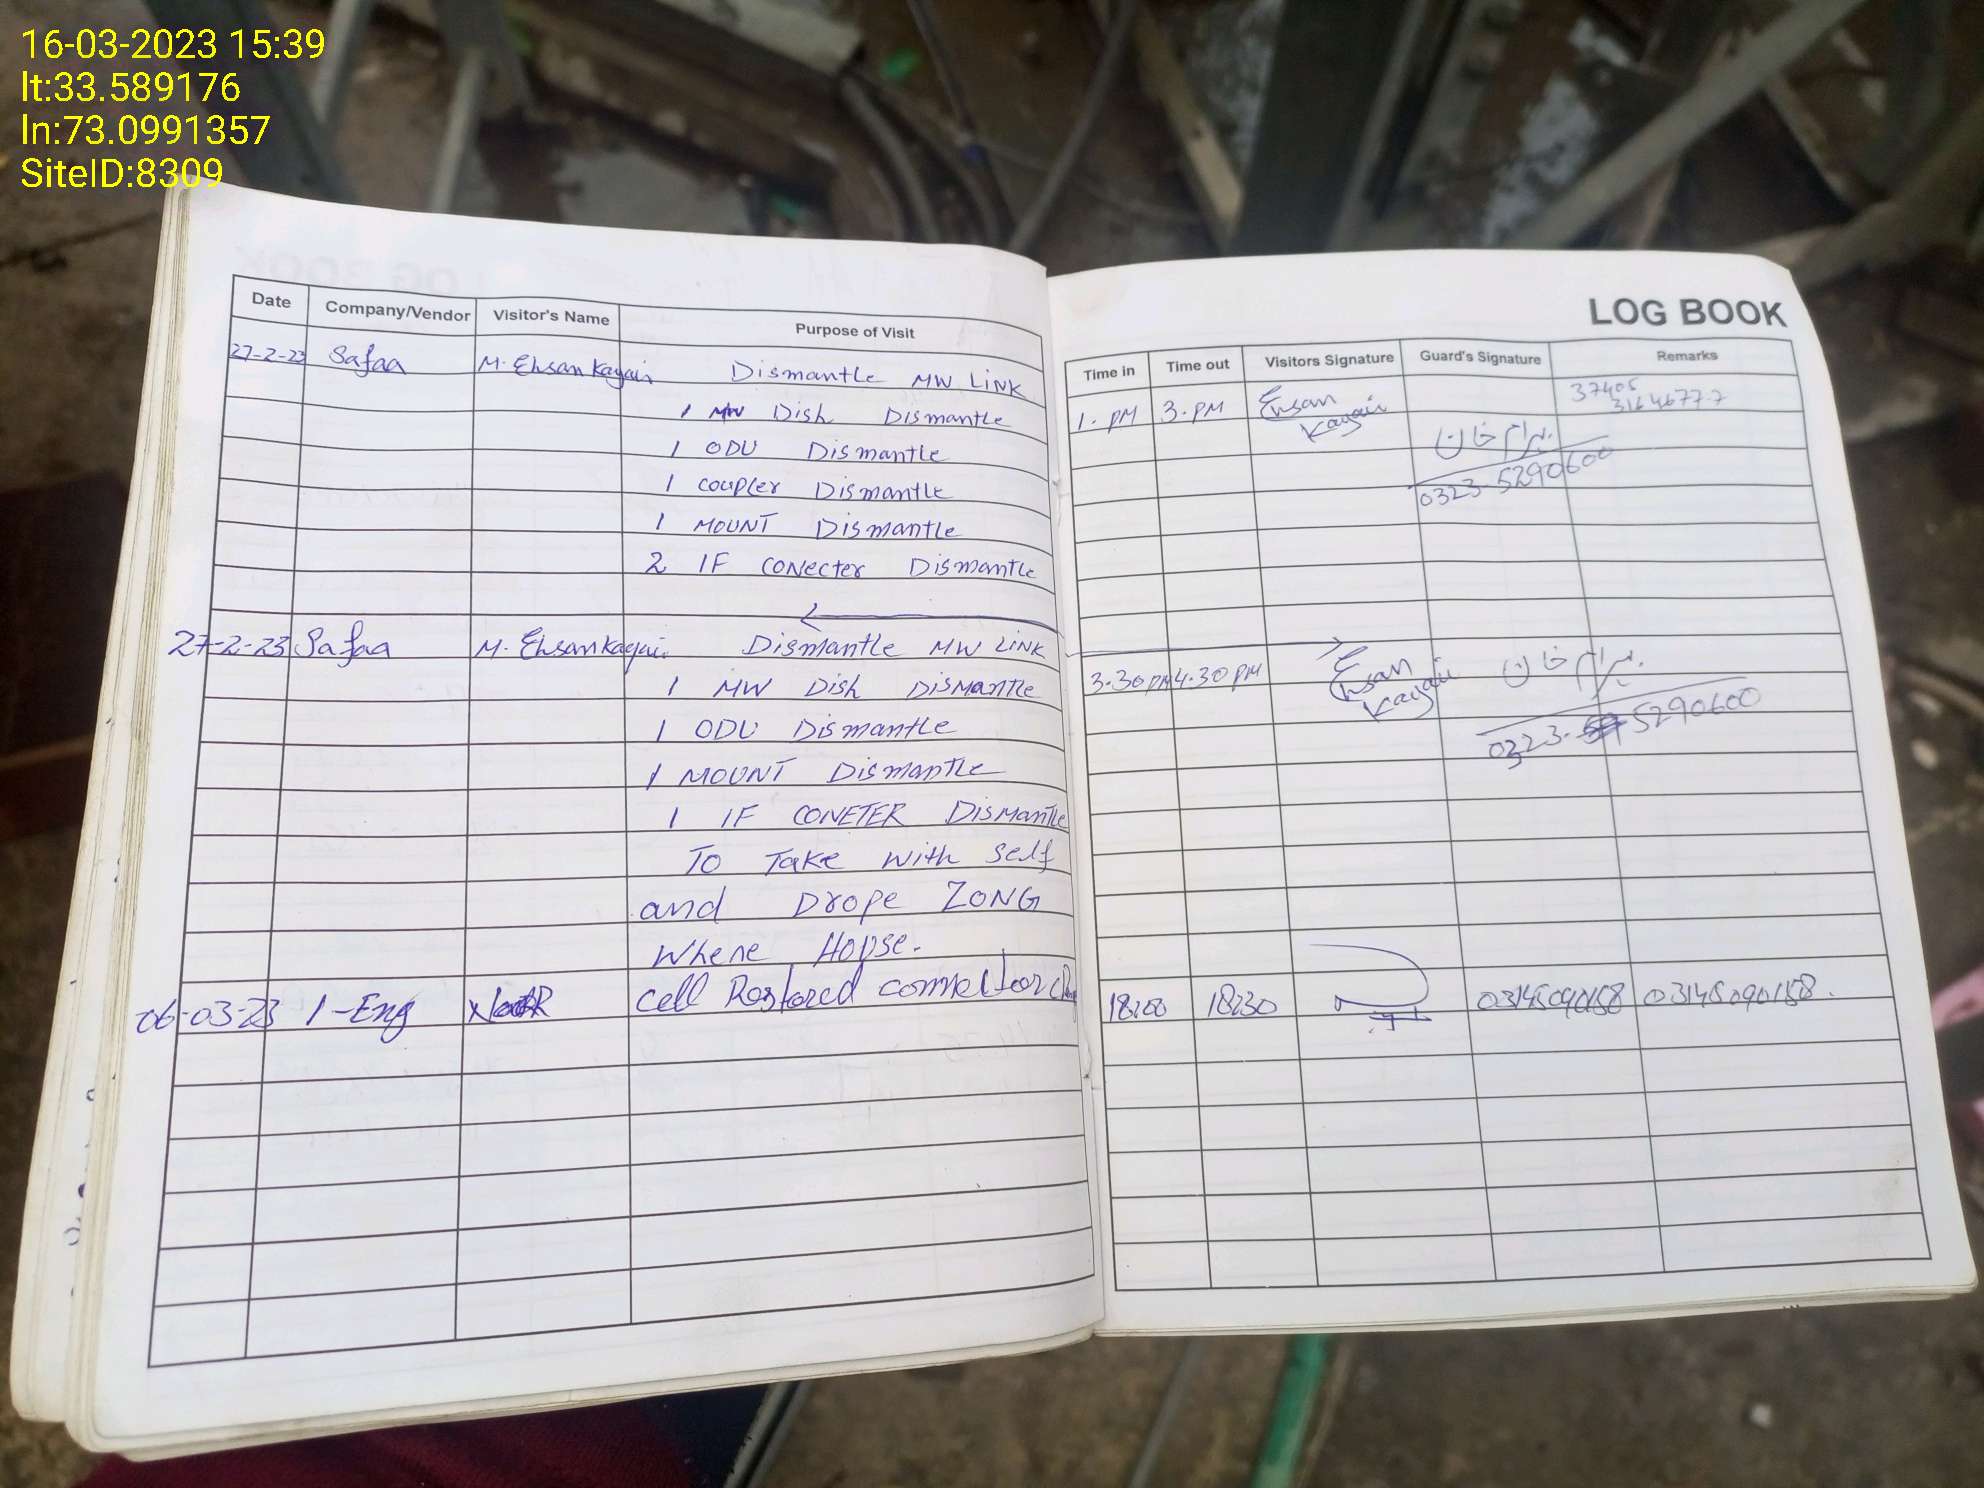 16-03-2023 15:39
lt:33.589176
ln:73.0991357
SiteID:8309
LOG BOOK
Date Company/Vendor Visitor's Name Purpose of Visit
Time in Time out Visitors Signature Guard's Signature Remarks
27-2-23 Safaa M. Ehsan Kayani Dismantle MW LINK
1 MW Dish Dismantle
1 ODU Dismantle
1 coupler Dismantle
1 MOUNT Dismantle
2 IF CONecter Dismantle
1. PM 3. PM Ehsan
37405
31646777
بہرام خان
0323-5290600
27-2-23 Safaa M. Ehsan Kayani Dismantle MW LINK
1 MW Dish Dismantle
1 ODU Dismantle
1 MOUNT Dismantle
1 IF CONETER Dismantle
To Take with self
and Drope ZONG
Where Hopse.
3.30 PM 4.30 PM Ehsan
بہرام خان
0323-5290600
06-03-23 1-Eng cell Restored
18:00 18:30 03145090158 03145090158.